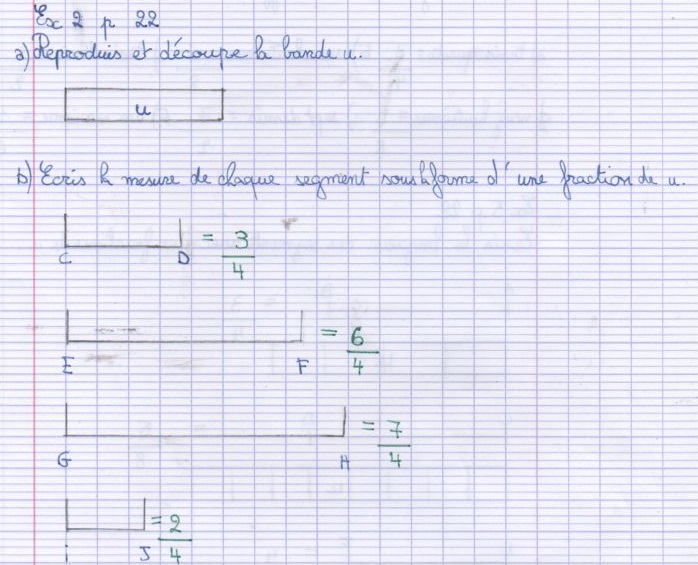 Ex 2 p 22
a) Reproduis et découpe la bande u.
u
b) Ecris la mesure de chaque segment sous la forme d'une fraction de u.
C D = 3/4
E F = 6/4
G H = 7/4
i J = 2/4